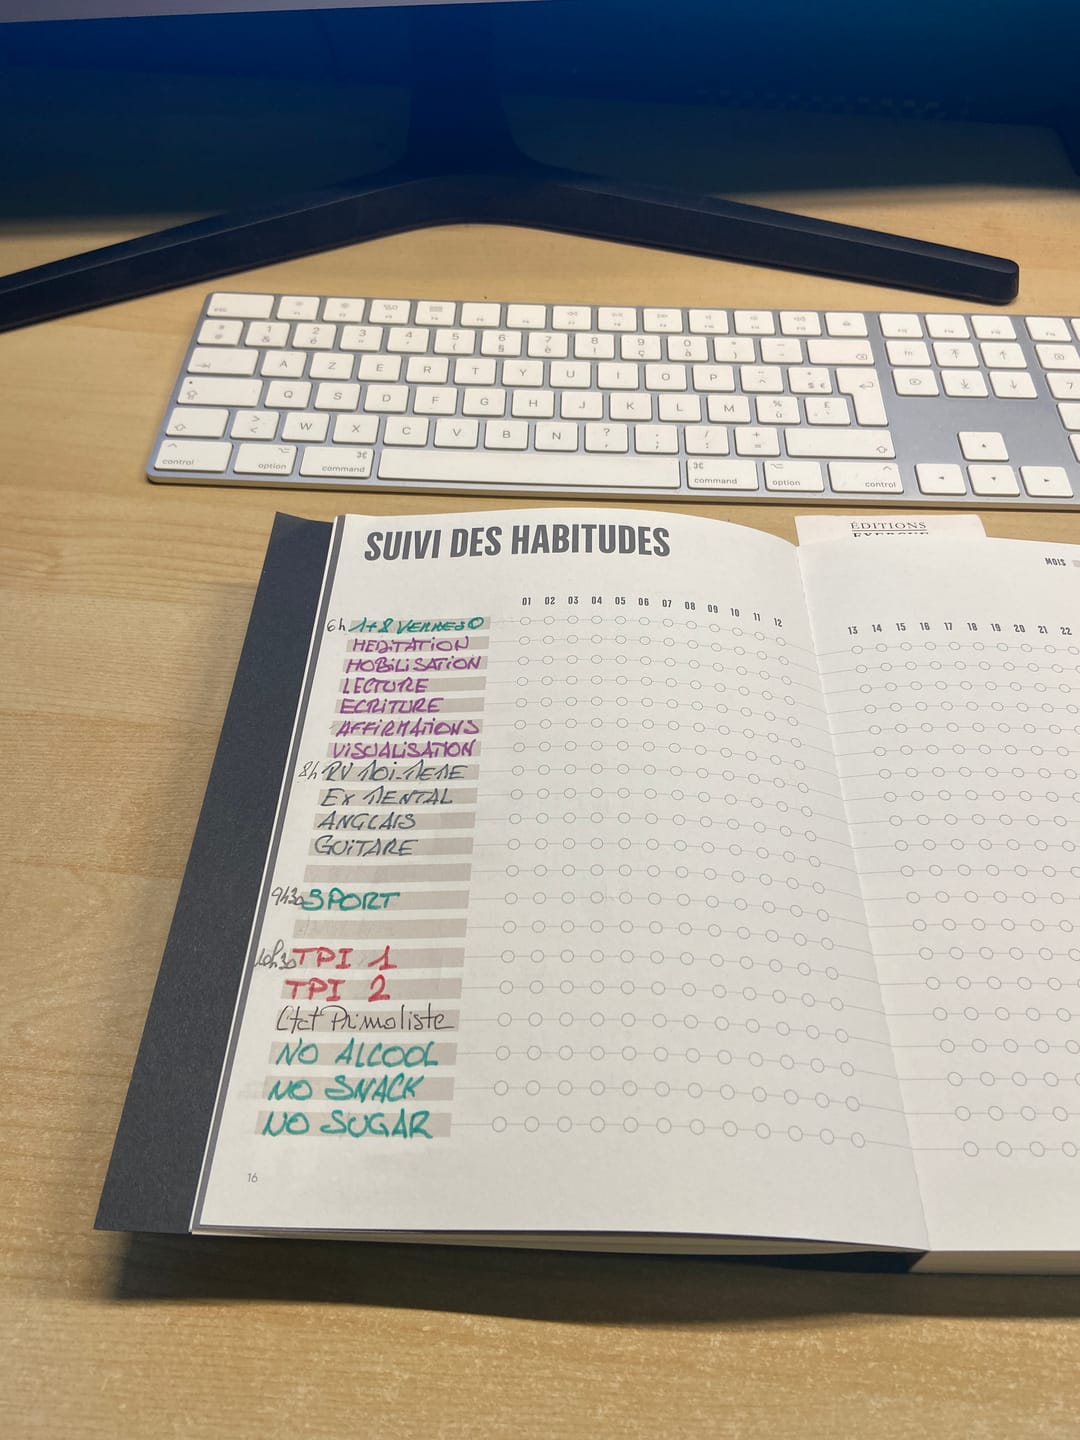 esc
A Z E R T Y U I O P
Q S D F G H J K L M
W X C V B N
control option command command option control
ÉDITIONS
SUIVI DES HABITUDES
MOIS
01 02 03 04 05 06 07 08 09 10 11 12
13 14 15 16 17 18 19 20 21 22
6h 1+8 VERRES O
MEDITATION
MOBILISATION
LECTURE
ECRITURE
AFFIRMATIONS
VISUALISATION
8h RV MOI-MEME
EX MENTAL
ANGLAIS
GUITARE
9h30 SPORT
10h30 TPI 1
TPI 2
Ctct Primoliste
NO ALCOOL
NO SNACK
NO SUGAR
16